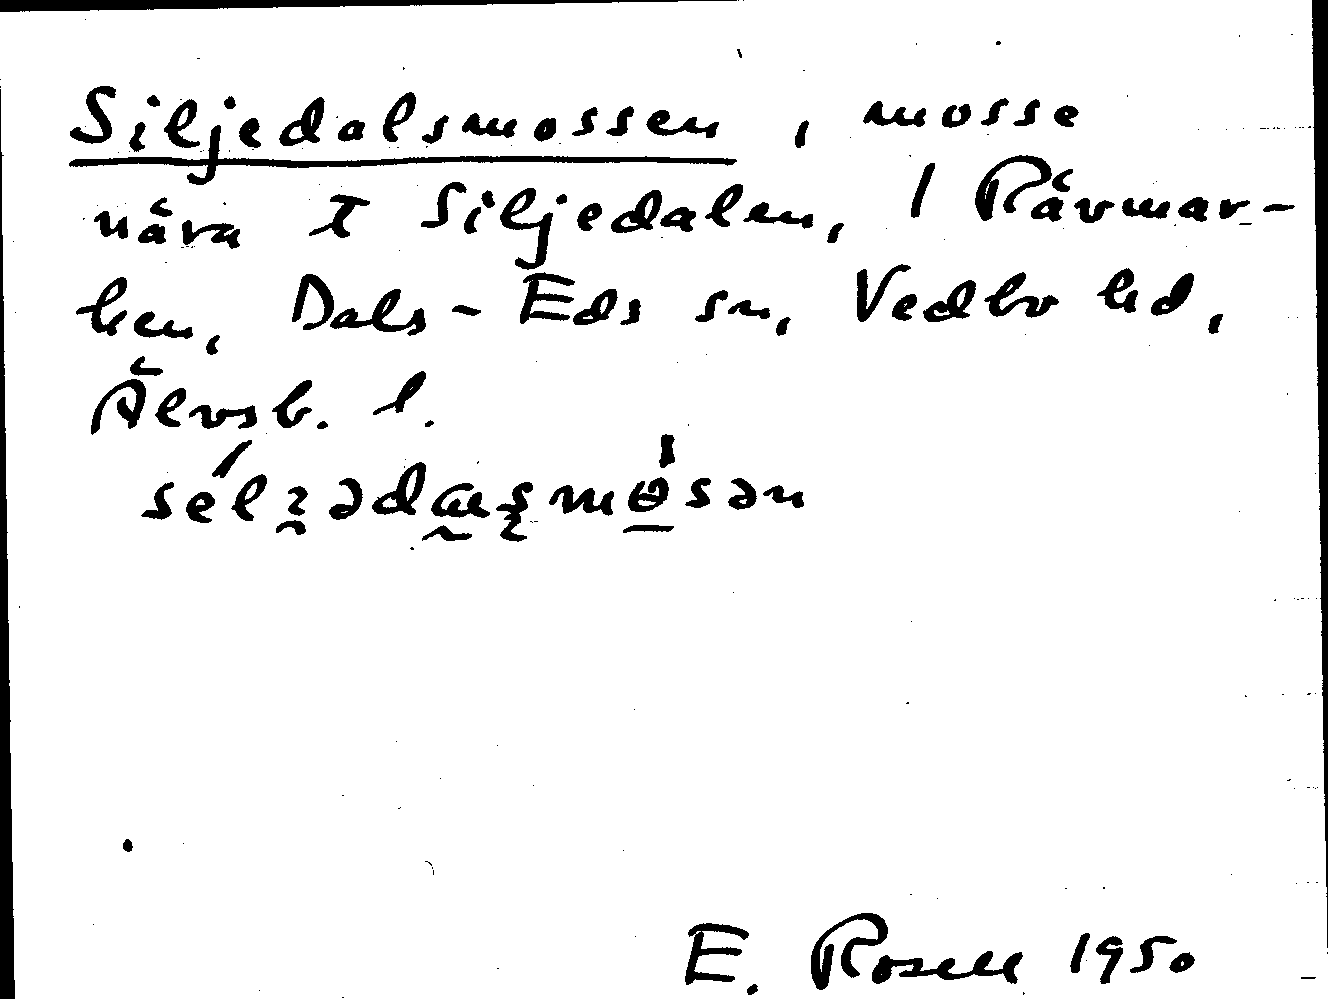 Siljedalsmossen, mosse
nära t Siljedalen, 1 Rävmar-
ken, Dals-Eds sn, Vedbo hd,
Älvsb. l.
E. Rosell 1950